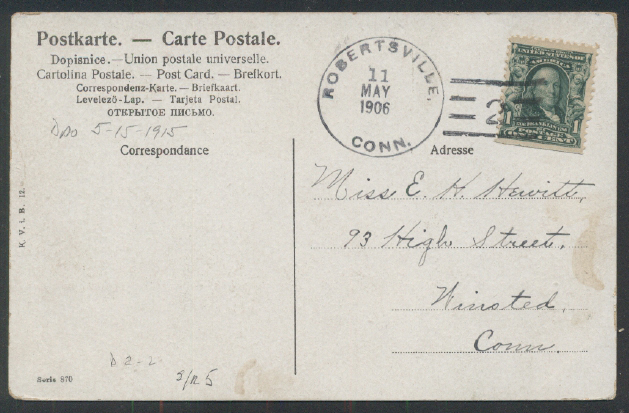 Postkarte. — Carte Postale.
Dopisnice. — Union postale universelle.
Cartolina Postale. — Post Card. — Brefkort.
Correspondenz-Karte. — Briefkaart.
Levelező-Lap. — Tarjeta Postal.
ОТКРЫТОЕ ПИСЬМО.
DPO 5-15-1915
Correspondance
ROBERTSVILLE,
11
MAY
1906
CONN.
UNITED STATES OF
AMERICA
1 1
POSTAGE
ONE CENT
2
Adresse
Miss E. H. Hewitt,
93 High Street,
Winsted,
Conn.
K. V. i. B. 12.
D 2-2
S/R 5
Serie 670